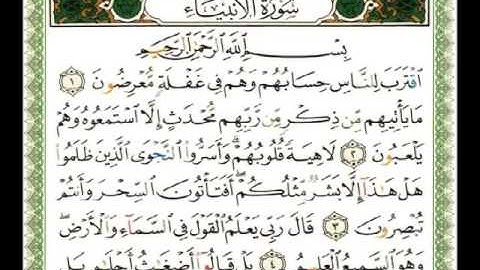 سُورَةُ الْأَنْبِيَاءِ
بِسْمِ اللَّهِ الرَّحْمَٰنِ الرَّحِيمِ
اقْتَرَبَ لِلنَّاسِ حِسَابُهُمْ وَهُمْ فِي غَفْلَةٍ مُّعْرِضُونَ ١
مَا يَأْتِيهِم مِّن ذِكْرٍ مِّن رَّبِّهِم مُّحْدَثٍ إِلَّا اسْتَمَعُوهُ وَهُمْ
يَلْعَبُونَ ٢ لَاهِيَةً قُلُوبُهُمْ ۗ وَأَسَرُّوا النَّجْوَى الَّذِينَ ظَلَمُوا
هَلْ هَٰذَا إِلَّا بَشَرٌ مِّثْلُكُمْ ۖ أَفَتَأْتُونَ السِّحْرَ وَأَنتُمْ
تُبْصِرُونَ ٣ قَالَ رَبِّي يَعْلَمُ الْقَوْلَ فِي السَّمَاءِ وَالْأَرْضِ ۖ
وَهُوَ السَّمِيعُ الْعَلِيمُ ٤ بَلْ قَالُوا أَضْغَاثُ أَحْلَامٍ بَلِ